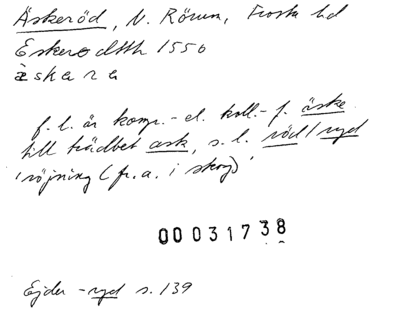 Äskeröd, N. Rörum, Frosta hd
Eskerodtth 1550
äskara
f. l. är komp.- el. koll.- f. äske
till trädbet ask, s. l. röd/ryd
'röjning (fr. a. i skog)'
00031738
Ejder -ryd s. 139